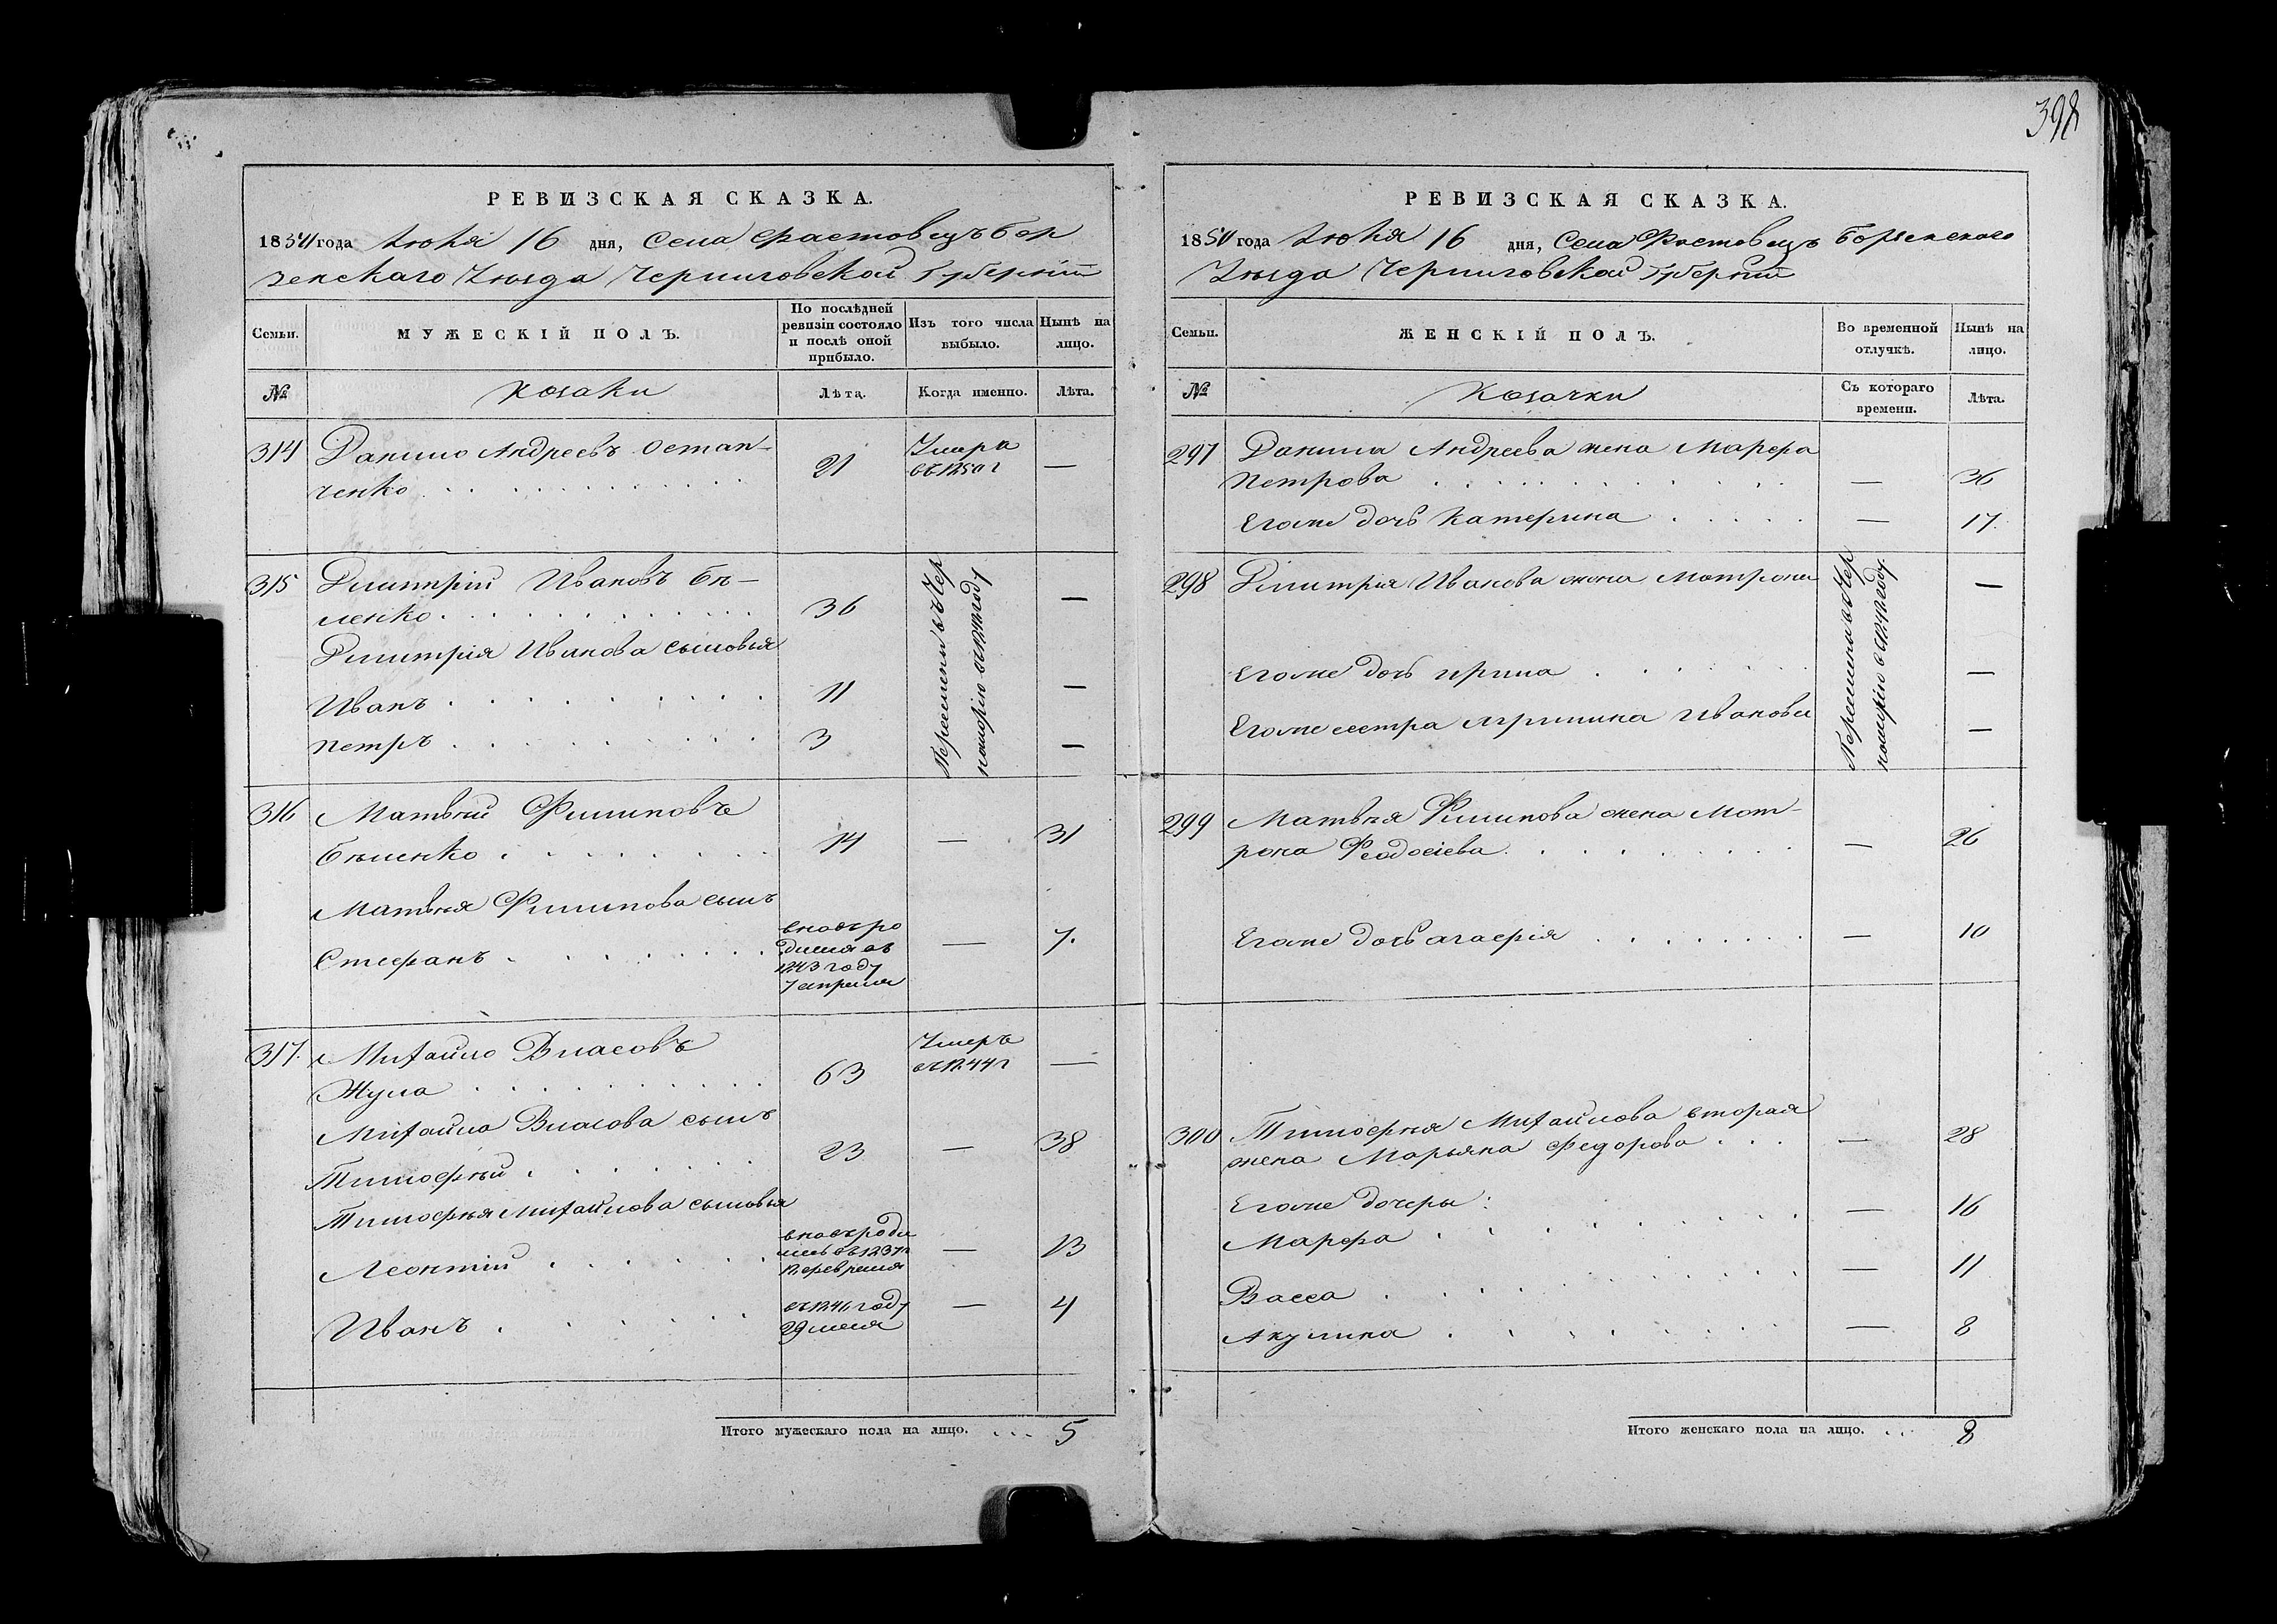 398
РЕВИЗСКАЯ СКАЗКА.
1850 года Июня 16 дня, Села Фастовецъ Бор
зенскаго Уѣзда Черниговской Губерніи
Семьи.
МУЖЕСКІЙ ПОЛЪ.
По послѣдней
ревизіи состояло
и послѣ оной
прибыло.
Изъ того числа
выбыло.
Нынѣ на
лицо.
№
Козаки
Лѣта.
Когда именно.
Лѣта.
314 Данило Андреевъ Остап-
ченко 21 —
Умеръ
въ 1850 г
315 Дмитрій Ивановъ Бѣ-
ленко 36 —
Дмитрія Иванова сыновья
Иванъ 11 —
Петръ 3 —
Переселены въ Чер
номорію въ году
316 Матвѣй Филиповъ
Бѣленко 14 — 31
Матвѣя Филипова сынъ
Стефанъ — 7.
вновь ро
дился въ
1843 году
7 апреля
317. Михайло Власовъ
Жула 63 —
Умеръ
въ 1844 г
Михайла Власова сынъ
Тимофѣй 23 — 38
Тимофѣя Михайлова сыновья
Леонтій — 13
вновь роди
лись въ 1837 г
февраля
Иванъ — 4
въ 1846 году
29 июля
Итого мужескаго пола на лицо. 5
РЕВИЗСКАЯ СКАЗКА.
1850 года Июня 16 дня, Села Фастовецъ Борзенскаго
Уѣзда Черниговской Губерніи
Семьи.
ЖЕНСКІЙ ПОЛЪ.
Во временной
отлучкѣ.
Нынѣ на
лицо.
№
Козачки
Съ котораго
времени.
Лѣта.
297 Данила Андреева жена Марфа
Петрова — 36
Егоже дочь Катерина — 17.
298 Дмитрія Иванова жена Матрона —
Егоже дочь Ирина —
Егоже сестра Агрипина Иванова —
Переселены въ Чер
номорію въ году.
299 Матвѣя Филипова жена Мот-
рона Феодосіева — 26
Егоже дочь Агафія — 10
300 Тимофѣя Михайлова вторая
жена Марьяна Федорова — 28
Егоже дочери:
Марфа — 16
Васса — 11
Акулина — 8
Итого женскаго пола на лицо. 8